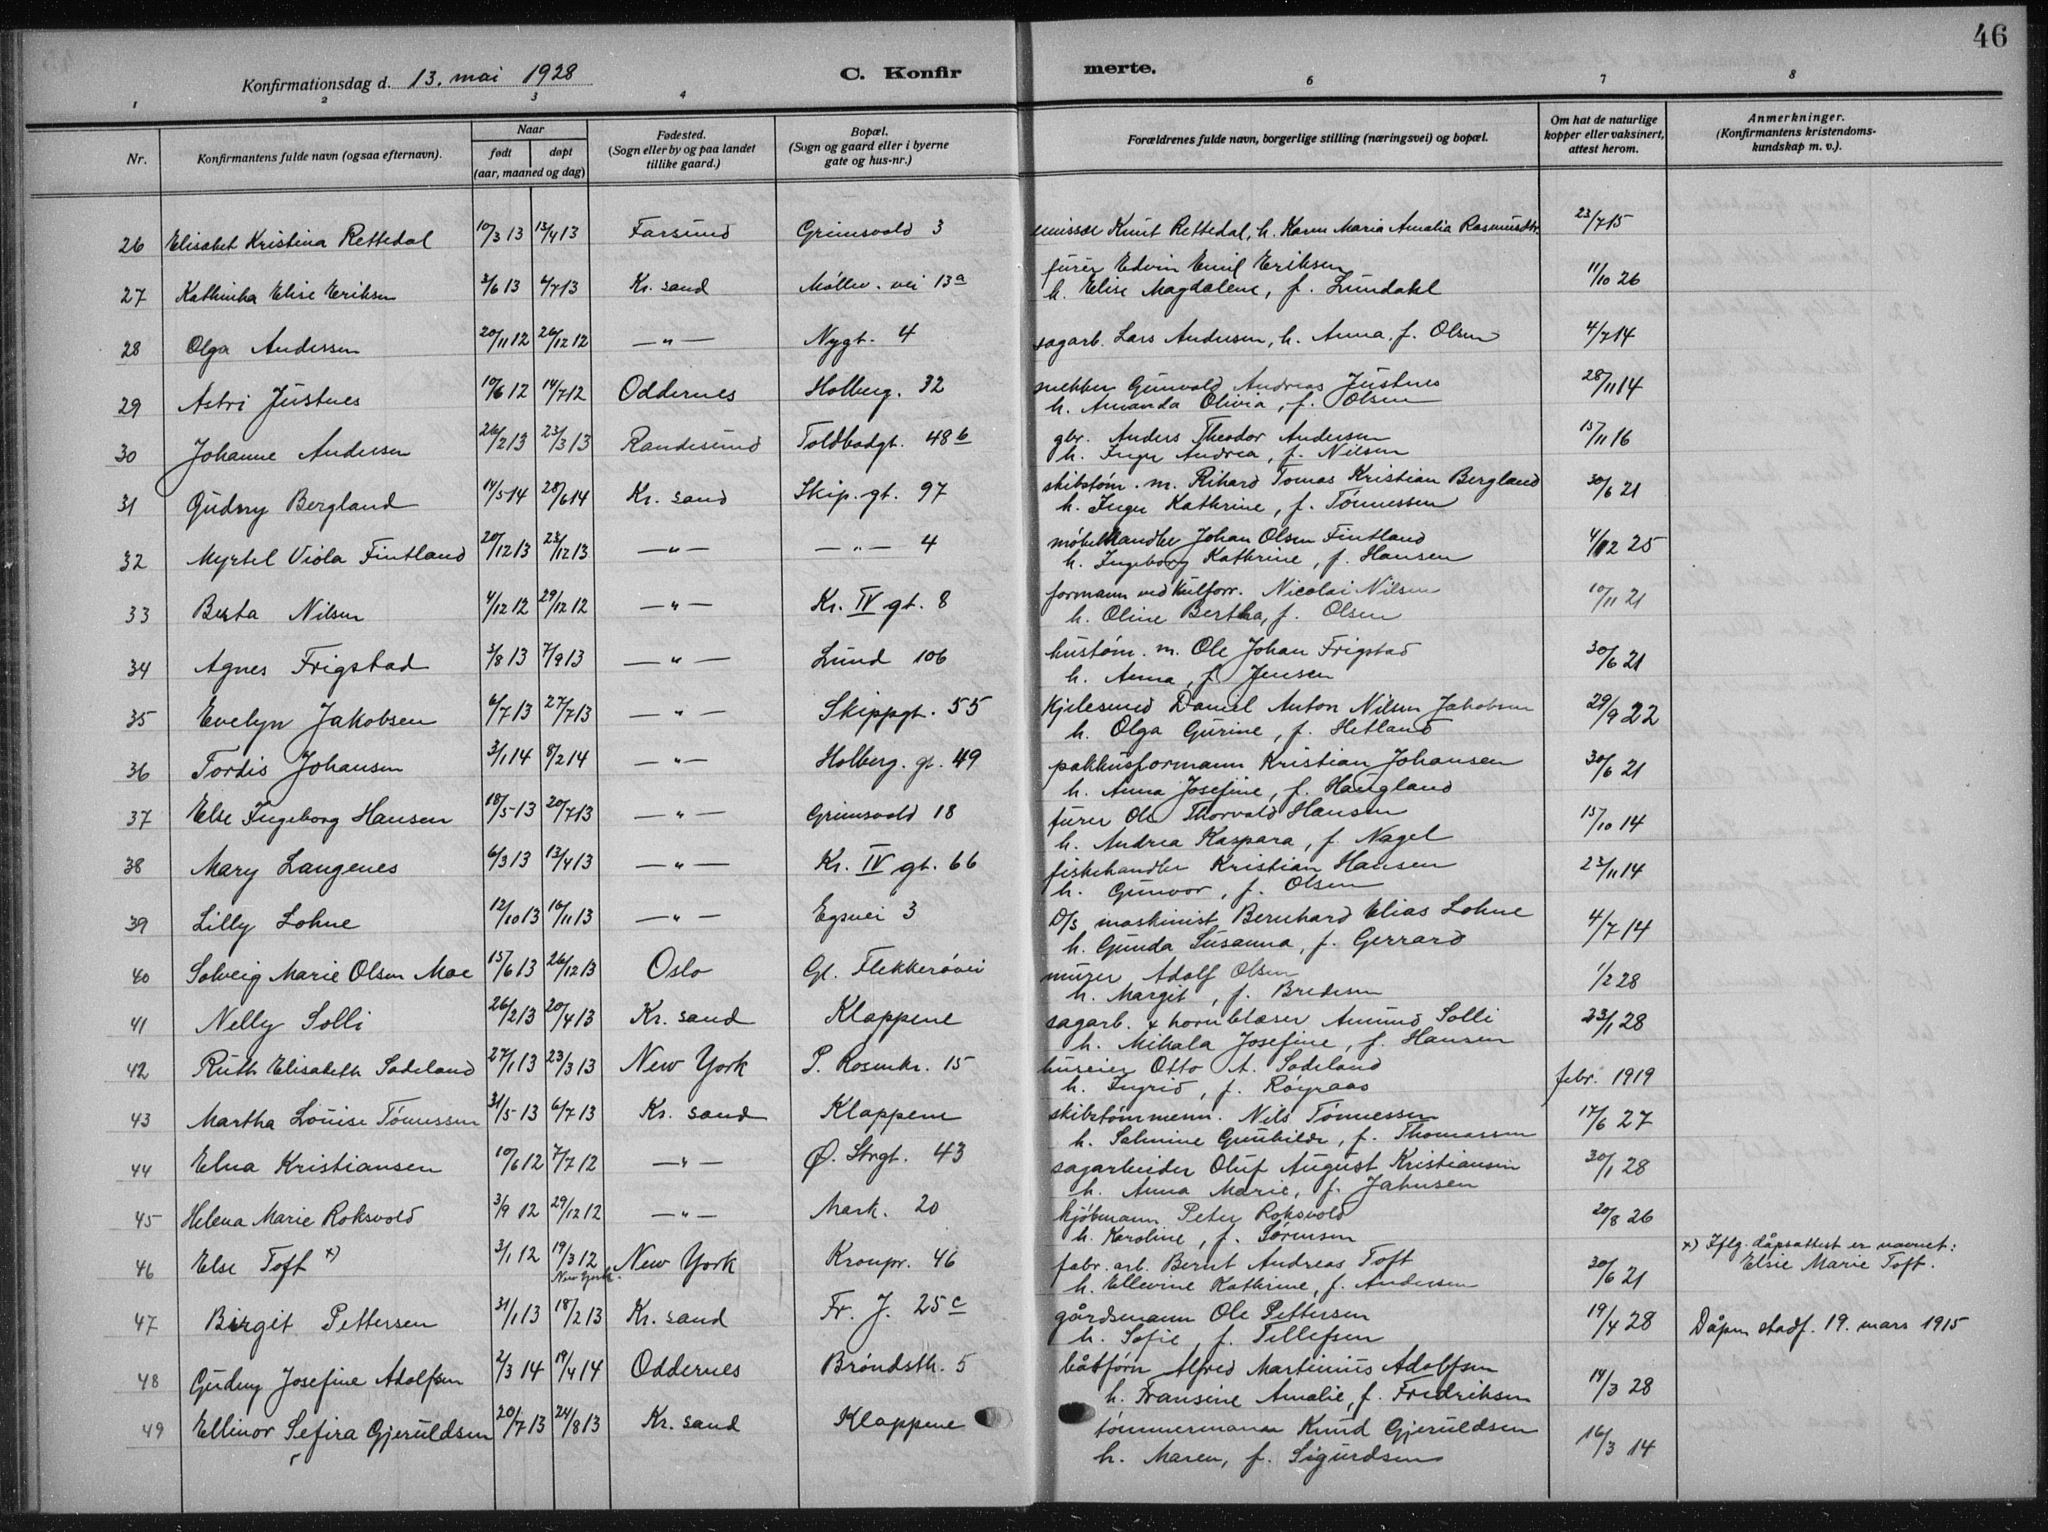 46
Konfirmationsdag d. 13. mai 1928
C. Konfirmerte.
1 2 3 4 6 7 8
Nr. Konfirmantens fulde navn (ogsaa efternavn). Naar født døpt (aar, maaned og dag) Fødested. (Sogn eller by og paa landet tillike gaard.) Bopæl. (Sogn og gaard eller i byerne gate og hus-nr.) Forældrenes fulde navn, borgerlige stilling (næringsvei) og bopæl. Om hat de naturlige kopper eller vaksinert, attest herom. Anmerkninger. (Konfirmantens kristendoms-kundskap m. v.).
26 Elisabet Kristina Rettedal 10/3 13 13/4 13 Farsund Grimsvold 3 Knut Rettedal, h. Karen Maria Amalia Rasmusdtr. 23/7 15
27 Kathinka Elise Eriksen 3/6 13 4/7 13 Kr. sand Møllev. vei 13a furer Edvin Emil Eriksen
h. Elise Magdalene, f. Lundahl 11/10 26
28 Olga Andersen 20/11 12 26/12 12 —"— Nygt. 4 sagarb. Lars Andersen, h. Anna f. Olsen 4/7 14
29 Astri Justnes 10/6 12 14/7 12 Oddernes Holberg. 32 snekker Gunvald Andreas Justnes
h. Amanda Olivia, f. Olsen 28/11 14
30 Johanne Andersen 26/2 13 23/3 13 Randesund Toldbodgt. 48b gbr. Anders Theodor Andersen
h. Inger Andrea, f. Nilsen 15/11 16
31 Gudny Bergland 14/5 14 28/6 14 Kr. sand Skip. gt. 97 skibstøm. m. Rihard Tomas Kristian Bergland
h. Inger Kathrine, f. Tønnessen 30/6 21
32 Myrtel Viola Fintland 20/12 13 23/12 13 —"— —"— 4 møbelhandler Johan Olsen Fintland
h. Ingeborg Kathrine, f. Hansen 4/12 25
33 Berta Nilsen 4/12 12 29/12 12 —"— Kr. IV gt. 8 formann ved Kulforr. Nicolai Nilsen
h. Oline Bertha, f. Olsen 10/11 21
34 Agnes Frigstad 3/8 13 7/9 13 —"— Lund 106 hustøm. m. Ole Johan Frigstad
h. Anna, f. Jensen 30/6 21
35 Evelyn Jakobsen 6/7 13 27/7 13 —"— Skippgt. 55 Kjelesmed Daniel Anton Nilsen Jakobsen
h. Olga Gurine, f. Hetland 29/9 22
36 Tordis Johansen 3/1 14 8/2 14 —"— Holberg. gt. 49 pakkhusformann Kristian Johansen
h. Anna Josefine, f. Haugland 30/6 21
37 Else Ingeborg Hansen 18/5 13 20/7 13 —"— Grimsvold 18 furer Ole Thorvald Hansen
h. Andrea Kaspara, f. Nagel 15/10 14
38 Mary Langenes 6/3 13 13/4 13 —"— Kr. IV gt. 66 fiskehandler Kristian Hansen
h. Gunvor, f. Olsen 23/11 14
39 Lilly Lohne 12/10 13 16/11 13 —"— Egsvei 3 D/s maskinist Bernhard Elias Lohne
h. Gunda Susanna, f. Gerrard 4/7 14
40 Solveig Marie Olsen Moe 15/6 13 26/12 13 Oslo Gl. Flekkerøvei murer Adolf Olsen
h. Margit, f. Bredesen 1/2 28
41 Nelly Solli 26/2 13 20/4 13 Kr. sand Kloppene sagarb. & hornblæser Amund Solli
h. Mikala Josefine, f. Hansen 23/1 28
42 Ruth Elisabeth Sodeland 27/1 13 23/3 13 New York P. Rosenkr. 15 huseier Otto A. Sodeland
h. Ingrid, f. Røyraas febr. 1919
43 Martha Louise Tønnessen 31/5 13 6/7 13 Kr. sand Kloppene skibstømmerm. Nils Tønnessen
h. Salmine Gunhilde, f. Thomassen 17/6 27
44 Elna Kristiansen 10/6 12 7/7 12 —"— Ø. Strgt. 43 sagarbeider Oluf August Kristiansen
h. Anna Marie, f. Jahnsen 30/1 28
45 Helena Marie Roksvold 3/9 12 29/12 12 —"— Mark. 20 kjøbmann Peter Roksvold
h. Karoline, f. Sørensen 20/8 26
46 Else Toft x) 3/1 12 19/3 12 New York. New York Kronpr. 46 fabr. arb. Bernt Andreas Toft
h. Ellevine Kathrine, f. Andersen 30/6 21 x) Iflg. dåpsattest er navnet:
Elsie Marie Toft.
47 Birgit Pettersen 31/1 13 18/2 13 Kr. sand Fr. J. 25c gårdsmann Ole Pettersen
h. Sofie, f. Tellefsen 19/4 28 Dåpen stadf. 19. mars 1915
48 Gudny Josefine Adolfsen 2/3 14 19/4 14 Oddernes Brøndsth. 5 båtfører Alfred Martinius Adolfsen
h. Fransine Amalie, f. Fredriksen 14/3 28
49 Ellinor Sefira Gjeruldsen 20/7 13 24/8 13 Kr. sand Kloppene tømmermann Knud Gjeruldsen
h. Maren, f. Sigurdsen 16/3 14